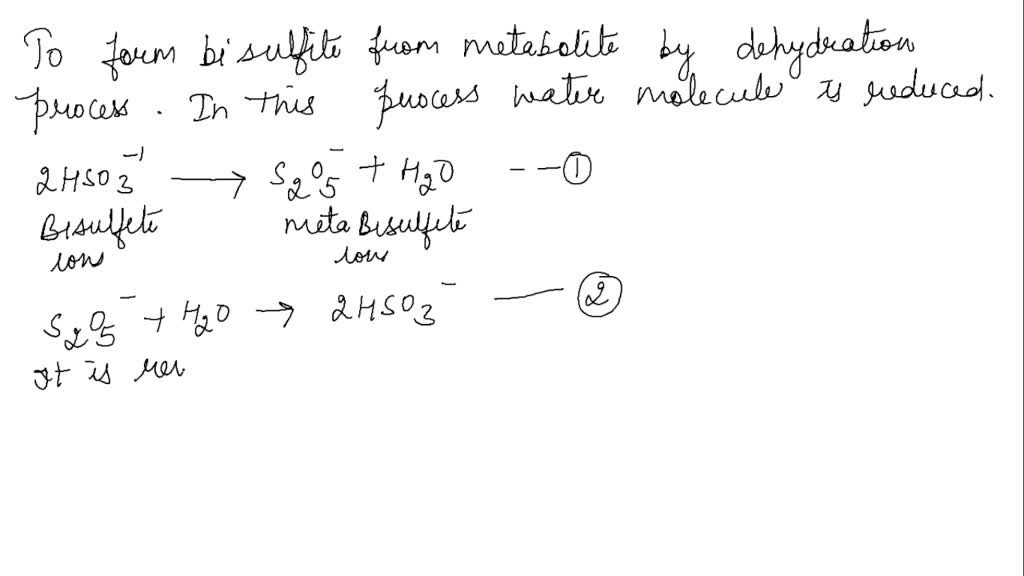 To form bisulfite from metabolite by dehydration
process. In this process water molecule is reduced.
2HSO₃⁻¹ ⟶ S₂O₅⁻ + H₂O --- ①
Bisulfite metaBisulfite
ions ions
S₂O₅⁻ + H₂O → 2HSO₃⁻ — ②
It is rev